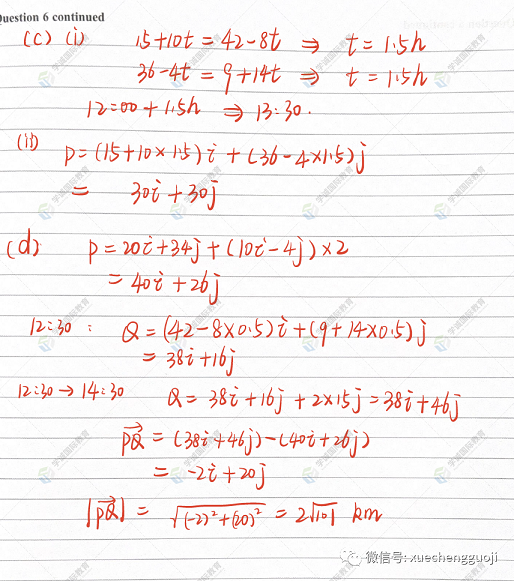 Question 6 continued
(c) (i) 15+10t = 42-8t ⇒ t = 1.5h
36-4t = 9+14t ⇒ t = 1.5h
12:00 + 1.5h ⇒ 13:30.
(ii) p = (15+10×1.5)i + (36-4×1.5)j
= 30i+30j
(d) p = 20i+34j+(10i-4j)×2
= 40i+26j
12:30 : Q = (42-8×0.5)i+(9+14×0.5)j
= 38i+16j
12:30 → 14:30 Q = 38i+16j+2×15j=38i+46j
→PQ = (38i+46j)-(40i+26j)
= -2i+20j
|→PQ| = √(-2)²+(20)² = 2√101 km
微信号: xuechengguoji